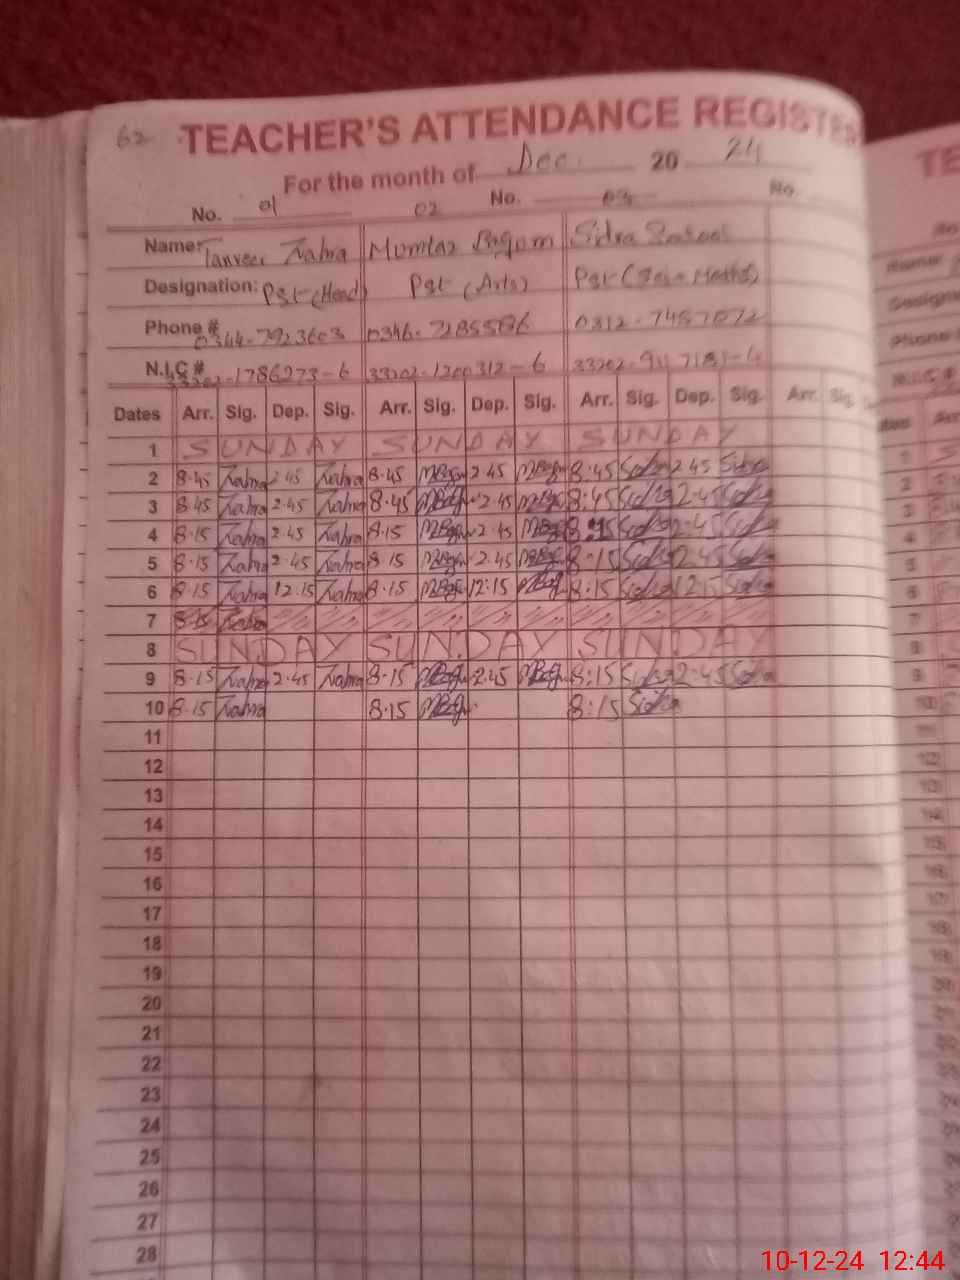 62 TEACHER'S ATTENDANCE REGISTER
For the month of Dec. 20 24
No. 01 02 No. 03 No.
Name: Tanveer Zahra Mumtaz Begum Sidra
Designation: Pst (Head) Pst (Arts) Pst (Sci-Maths)
Phone # 0344-7923603 0346-7285586 0312-7457072
N.I.C # 33202-1786273-6 33202-1200312-6
Dates Arr. Sig. Dep. Sig. Arr. Sig. Dep. Sig. Arr. Sig. Dep. Sig. Arr. Sig.
1 SUNDAY SUNDAY SUNDAY
2 8.45 Zahra 2.45 Zahra 8.45 MBegum 2.45 MBegum 8.45 Sidra 2.45 Sidra
3 8.45 Zahra 2.45 Zahra 8.45 MBegum 2.45 MBegum 8:45 Sidra 2.45 Sidra
4 8.15 Zahra 2.45 Zahra 8.15 MBegum 2.45 MBegum 8:15 Sidra 2.45 Sidra
5 8.15 Zahra 2.45 Zahra 8.15 MBegum 2.45 MBegum 8:15 Sidra 2.45 Sidra
6 8.15 Zahra 12.15 Zahra 8.15 MBegum 12:15 MBegum 8:15 Sidra 12.15 Sidra
7 8.15 Zahra
8 SUNDAY SUNDAY SUNDAY
9 8.15 Zahra 2.45 Zahra 8.15 MBegum 2.45 MBegum 8:15 Sidra 2.45 Sidra
10 8.15 Zahra 8.15 MBegum 8:15 Sidra
11
12
13
14
15
16
17
18
19
20
21
22
23
24
25
26
27
28
10-12-24 12:44